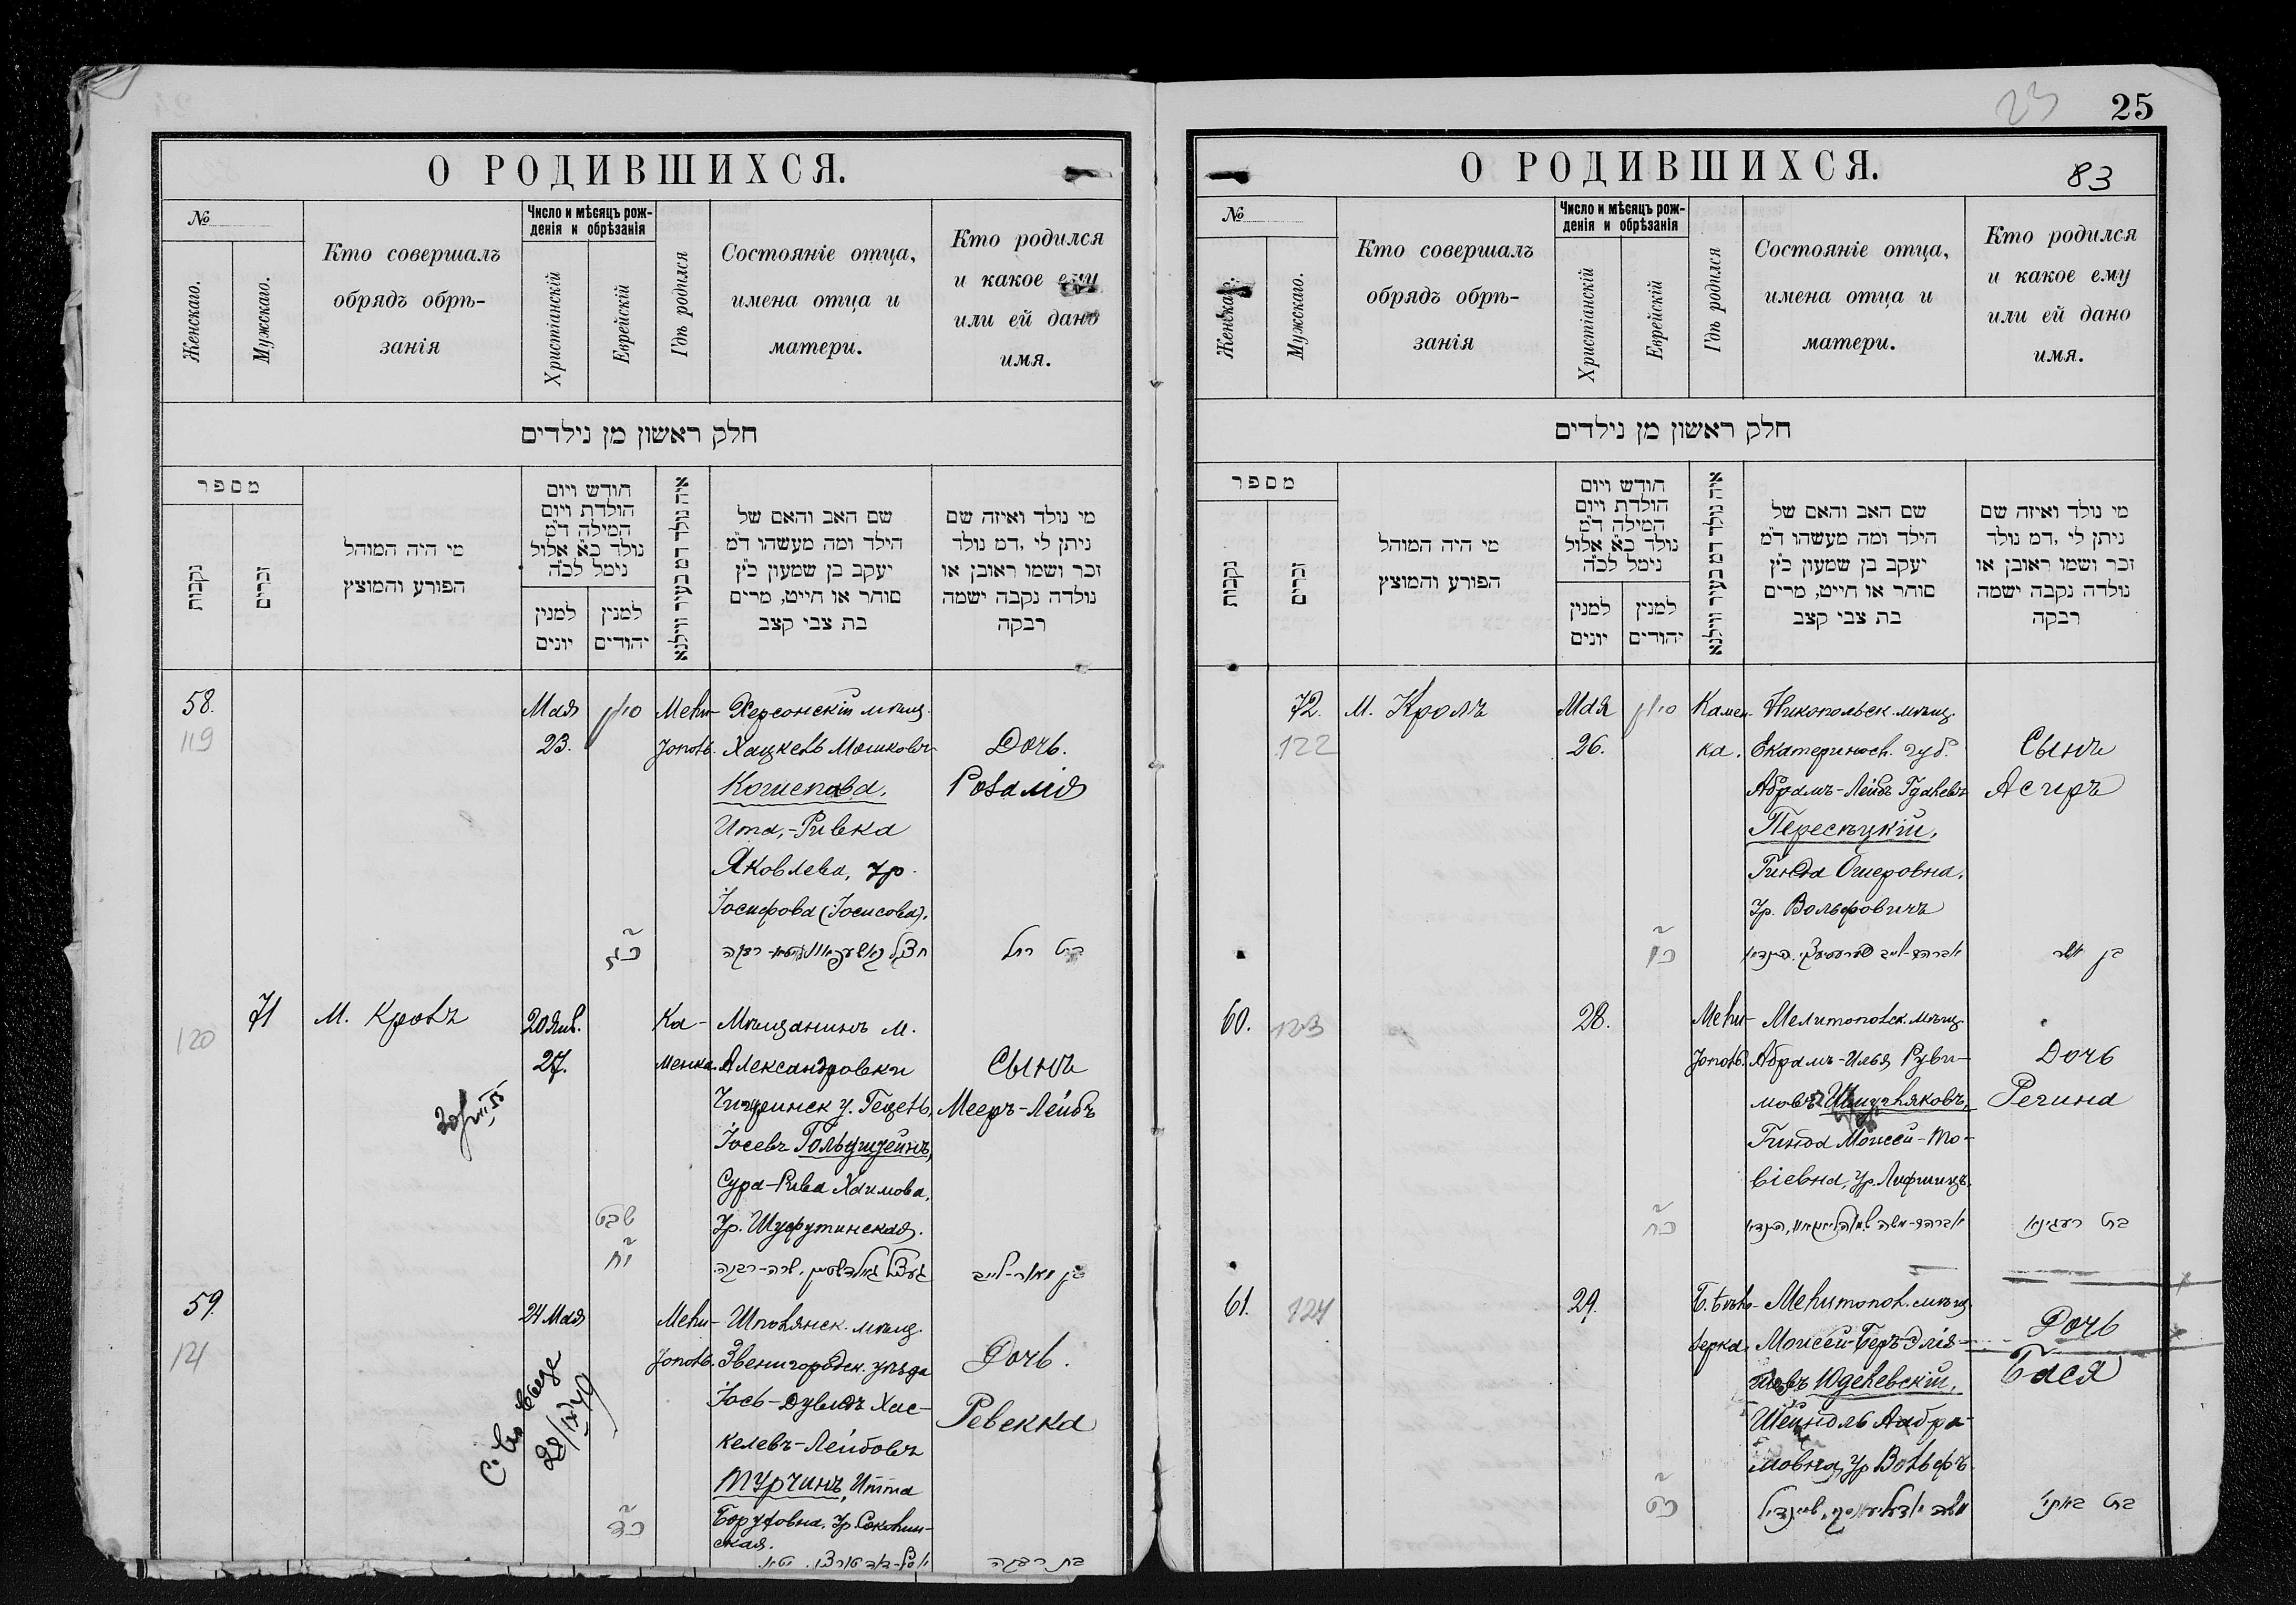 О РОДИВШИХСЯ.
№
Женскаго.
Мужскаго.
Кто совершалъ
обрядъ обрѣ-
занія
Число и мѣсяцъ рож-
денія и обрѣзанія
Христіанскій
Еврейскій
Гдѣ родился
Состояніе отца,
имена отца и
матери.
Кто родился
и какое ему
или ей дано
имя.
חלק ראשון מן נילדים
מספר
נקבות
זכרים
מי היה המוהל
הפורע והמוצץ
חודש ויום
הולדת ויום
המילה ד"מ
נולד כ"א אלול
נימל לכ"ה
למנין
יונים
למנין
יהודים
שם האב והאם של
הילד ומה מעשהו ד"מ
יעקב בן שמעון כ"ץ
סוחר או חייט, מרים
בת צבי קצב
מי נולד ואיזה שם
ניתן לי, דמ נולד
זכר ושמו ראובן או
נולדה נקבה ישמה
רבקה
58.
119
Мая
23.
סיון
כג
Мели-
тополь.
Херсонскій мѣщ.
Хацкель Мошковъ
Ита,-Ривка
Яковлева, ур.
Іосифова (Іосисова).
Дочь.
Розалія
בת רחל
71
120
М. Кроль
20 Янв.
27.
שבט
יח
Ка-
менка.
Мѣщанинъ м.
Александровки
Чигиринск у. Гецель
Іосевъ Гольдштейнъ,
Сура-Рива Хаимова,
Ур. Шуфутинская.
געצל גאלדשטיין, שרה-רבקה
Сынъ
Мееръ-Лейбъ
בן מאיר-לייב
59.
121
24 Мая
כד
Мели-
тополь.
Шполянск. мѣщ.
Звенигородск. уѣзда
Іось-Дувидъ Хас-
келевъ-Лейбовъ
Турчинъ, Итта
Боруховна, Ур. Соколин-
ская.
Дочь.
Ревекка
בת רבקה
23
25
О РОДИВШИХСЯ.
83
№
Женскаго.
Мужскаго.
Кто совершалъ
обрядъ обрѣ-
занія
Число и мѣсяцъ рож-
денія и обрѣзанія
Христіанскій
Еврейскій
Гдѣ родился
Состояніе отца,
имена отца и
матери.
Кто родился
и какое ему
или ей дано
имя.
חלק ראשון מן נילדים
מספר
נקבות
זכרים
מי היה המוהל
הפורע והמוצץ
חודש ויום
הולדת ויום
המילה ד"מ
נולד כ"א אלול
נימל לכ"ה
למנין
יונים
למנין
יהודים
שם האב והאם של
הילד ומה מעשהו ד"מ
יעקב בן שמעון כ"ץ
סוחר או חייט, מרים
בת צבי קצב
מי נולד ואיזה שם
ניתן לי, דמ נולד
זכר ושמו ראובן או
נולדה נקבה ישמה
רבקה
72.
122
М. Кроль
Мая
26.
סיון
כו
Камен-
ка.
Никопольск. мѣщ.
Екатеринosл. губ.
Абрамъ-Лейбъ Гдалевъ
Пересѣцкій,
Гинда Ошеровна,
Ур. Вольфовичъ
Сынъ
Асиръ
בן אשר
60.
123
28.
כח
Мели-
тополь.
Мелитопольск. мѣщ.
Абрамъ-Илья Руви-
мовъ
Гинда Моисей-То-
віевна, Ур. Лифшицъ.
Дочь
Регина
בת רעגינא
61.
124
29.
כט
Б. Бѣло-
зерка.
Мелитопол. мѣщ.
Моисей-Беръ Элія-
шевъ Юделевскій,
Шейндль Абра-
мовна, Ур Вольфъ
Дочь
Бася
בת באסי